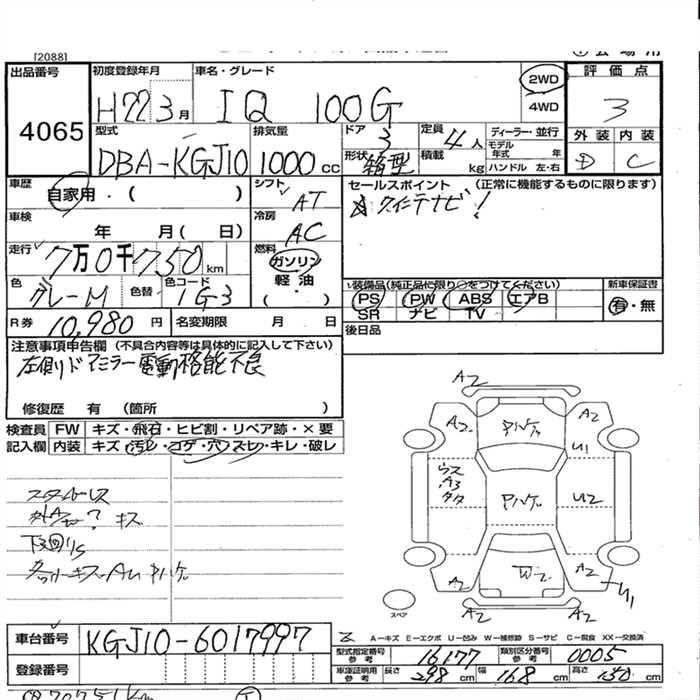 [2088]
出品番号
4065
初度登録年月
H22 3月
車名・グレード
IQ 100G
2WD
4WD
評価点
3
外装 内装
D C
型式
DBA-KGJ10
排気量
1000 cc
ドア
3
形状
箱型
定員
4人
積載
kg
ディーラー・並行
モデル年式 年
ハンドル 左・右
車歴
自家用・( )
シフト
AT
セールスポイント (正常に機能するものに限ります)
ナビ!
車検
年 月( 日)
冷房
AC
走行
7万0千750km
燃料
ガソリン
軽油
・( )
色
グレーM
色替
色コード
1G3
装備品(純正品に限り○をつけてください)
PS PW ABS エアB
SR ナビ TV
新車保証書
有・無
R券
10,980円
名変期限 月 日
後日品
注意事項申告欄 (不具合内容等は具体的に記入して下さい)
左側ドアミラー電動格能不良
修復歴 有 (箇所 )
検査員記入欄
FW キズ・飛石・ヒビ割・リペア跡・×要
内装 キズ・汚レ・コゲ・穴・スレ・キレ・破レ
スタッドレス
キズ
A2
A2 A2
U1
ウス
A3
U2
W2
A2 A2
U1
A2 A2
スペア
A-キズ E-エクボ U-凹み W-補修跡 S-サビ C-腐食 XX-交換済
車台番号
KGJ10-6017997
登録番号
型式指定番号 参考
16177
類別区分番号 参考
0005
車庫証明用 参考
長さ 298cm 幅 168cm 高さ 150cm